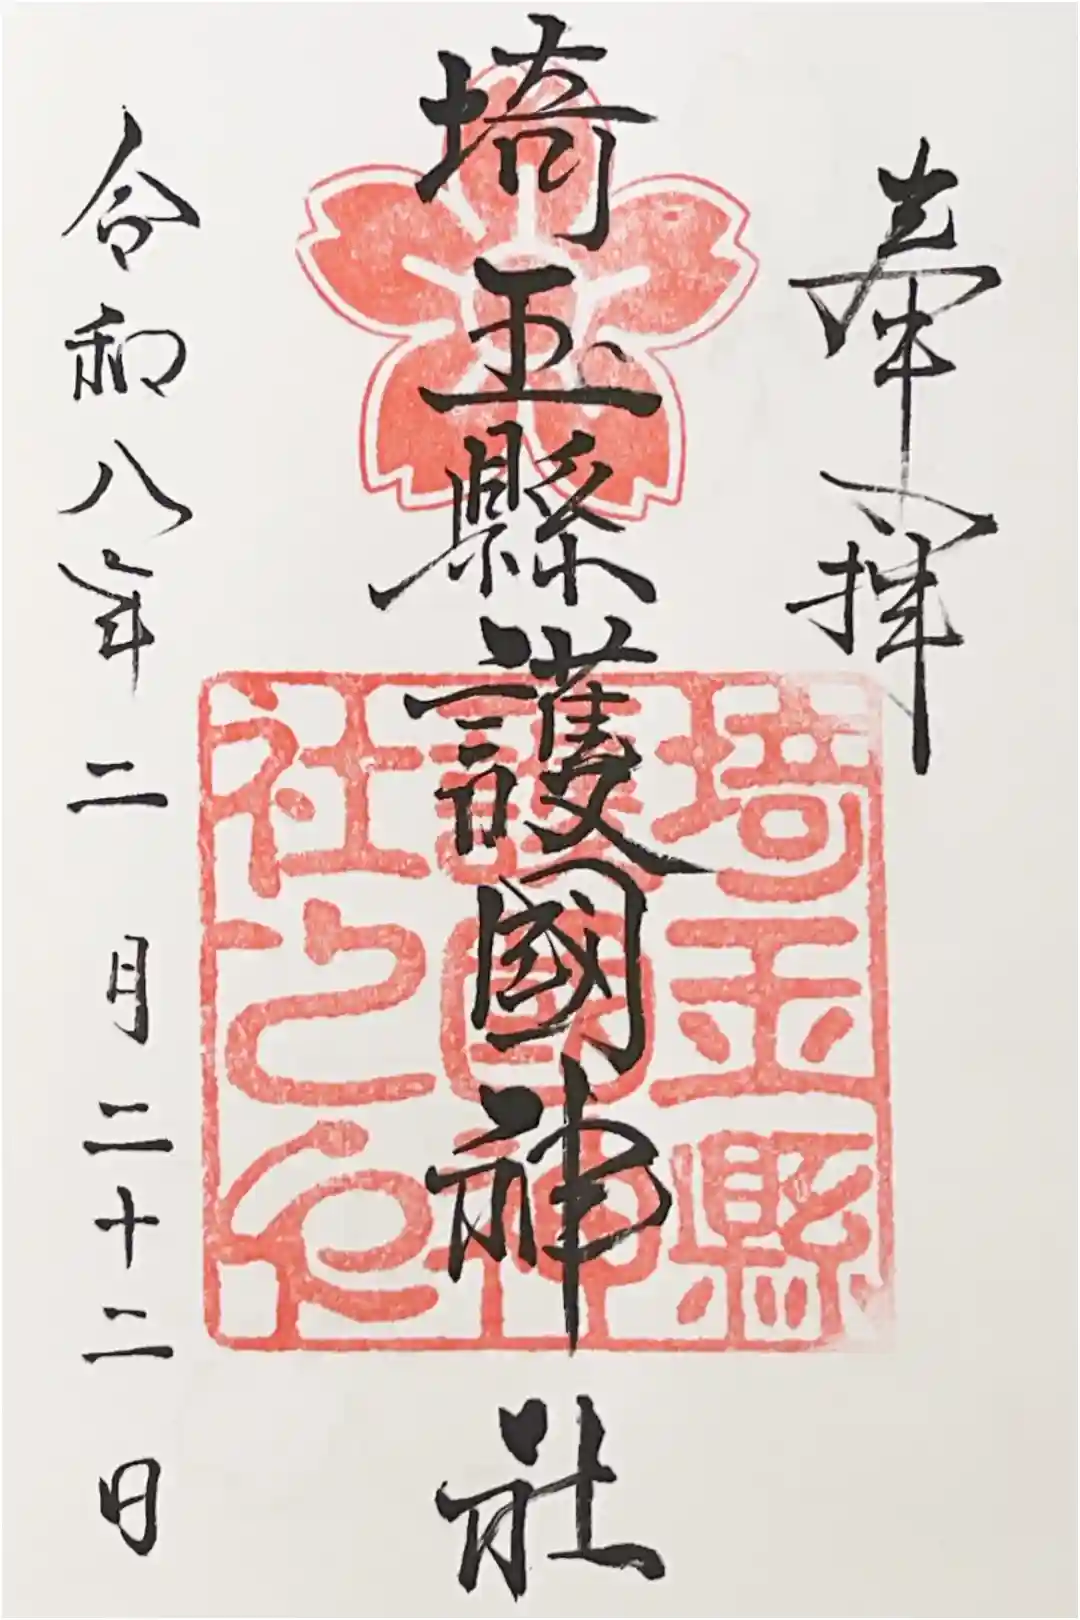 奉拝
埼玉縣護國神社
埼玉縣
護國神
社之印
令和八年二月二十二日